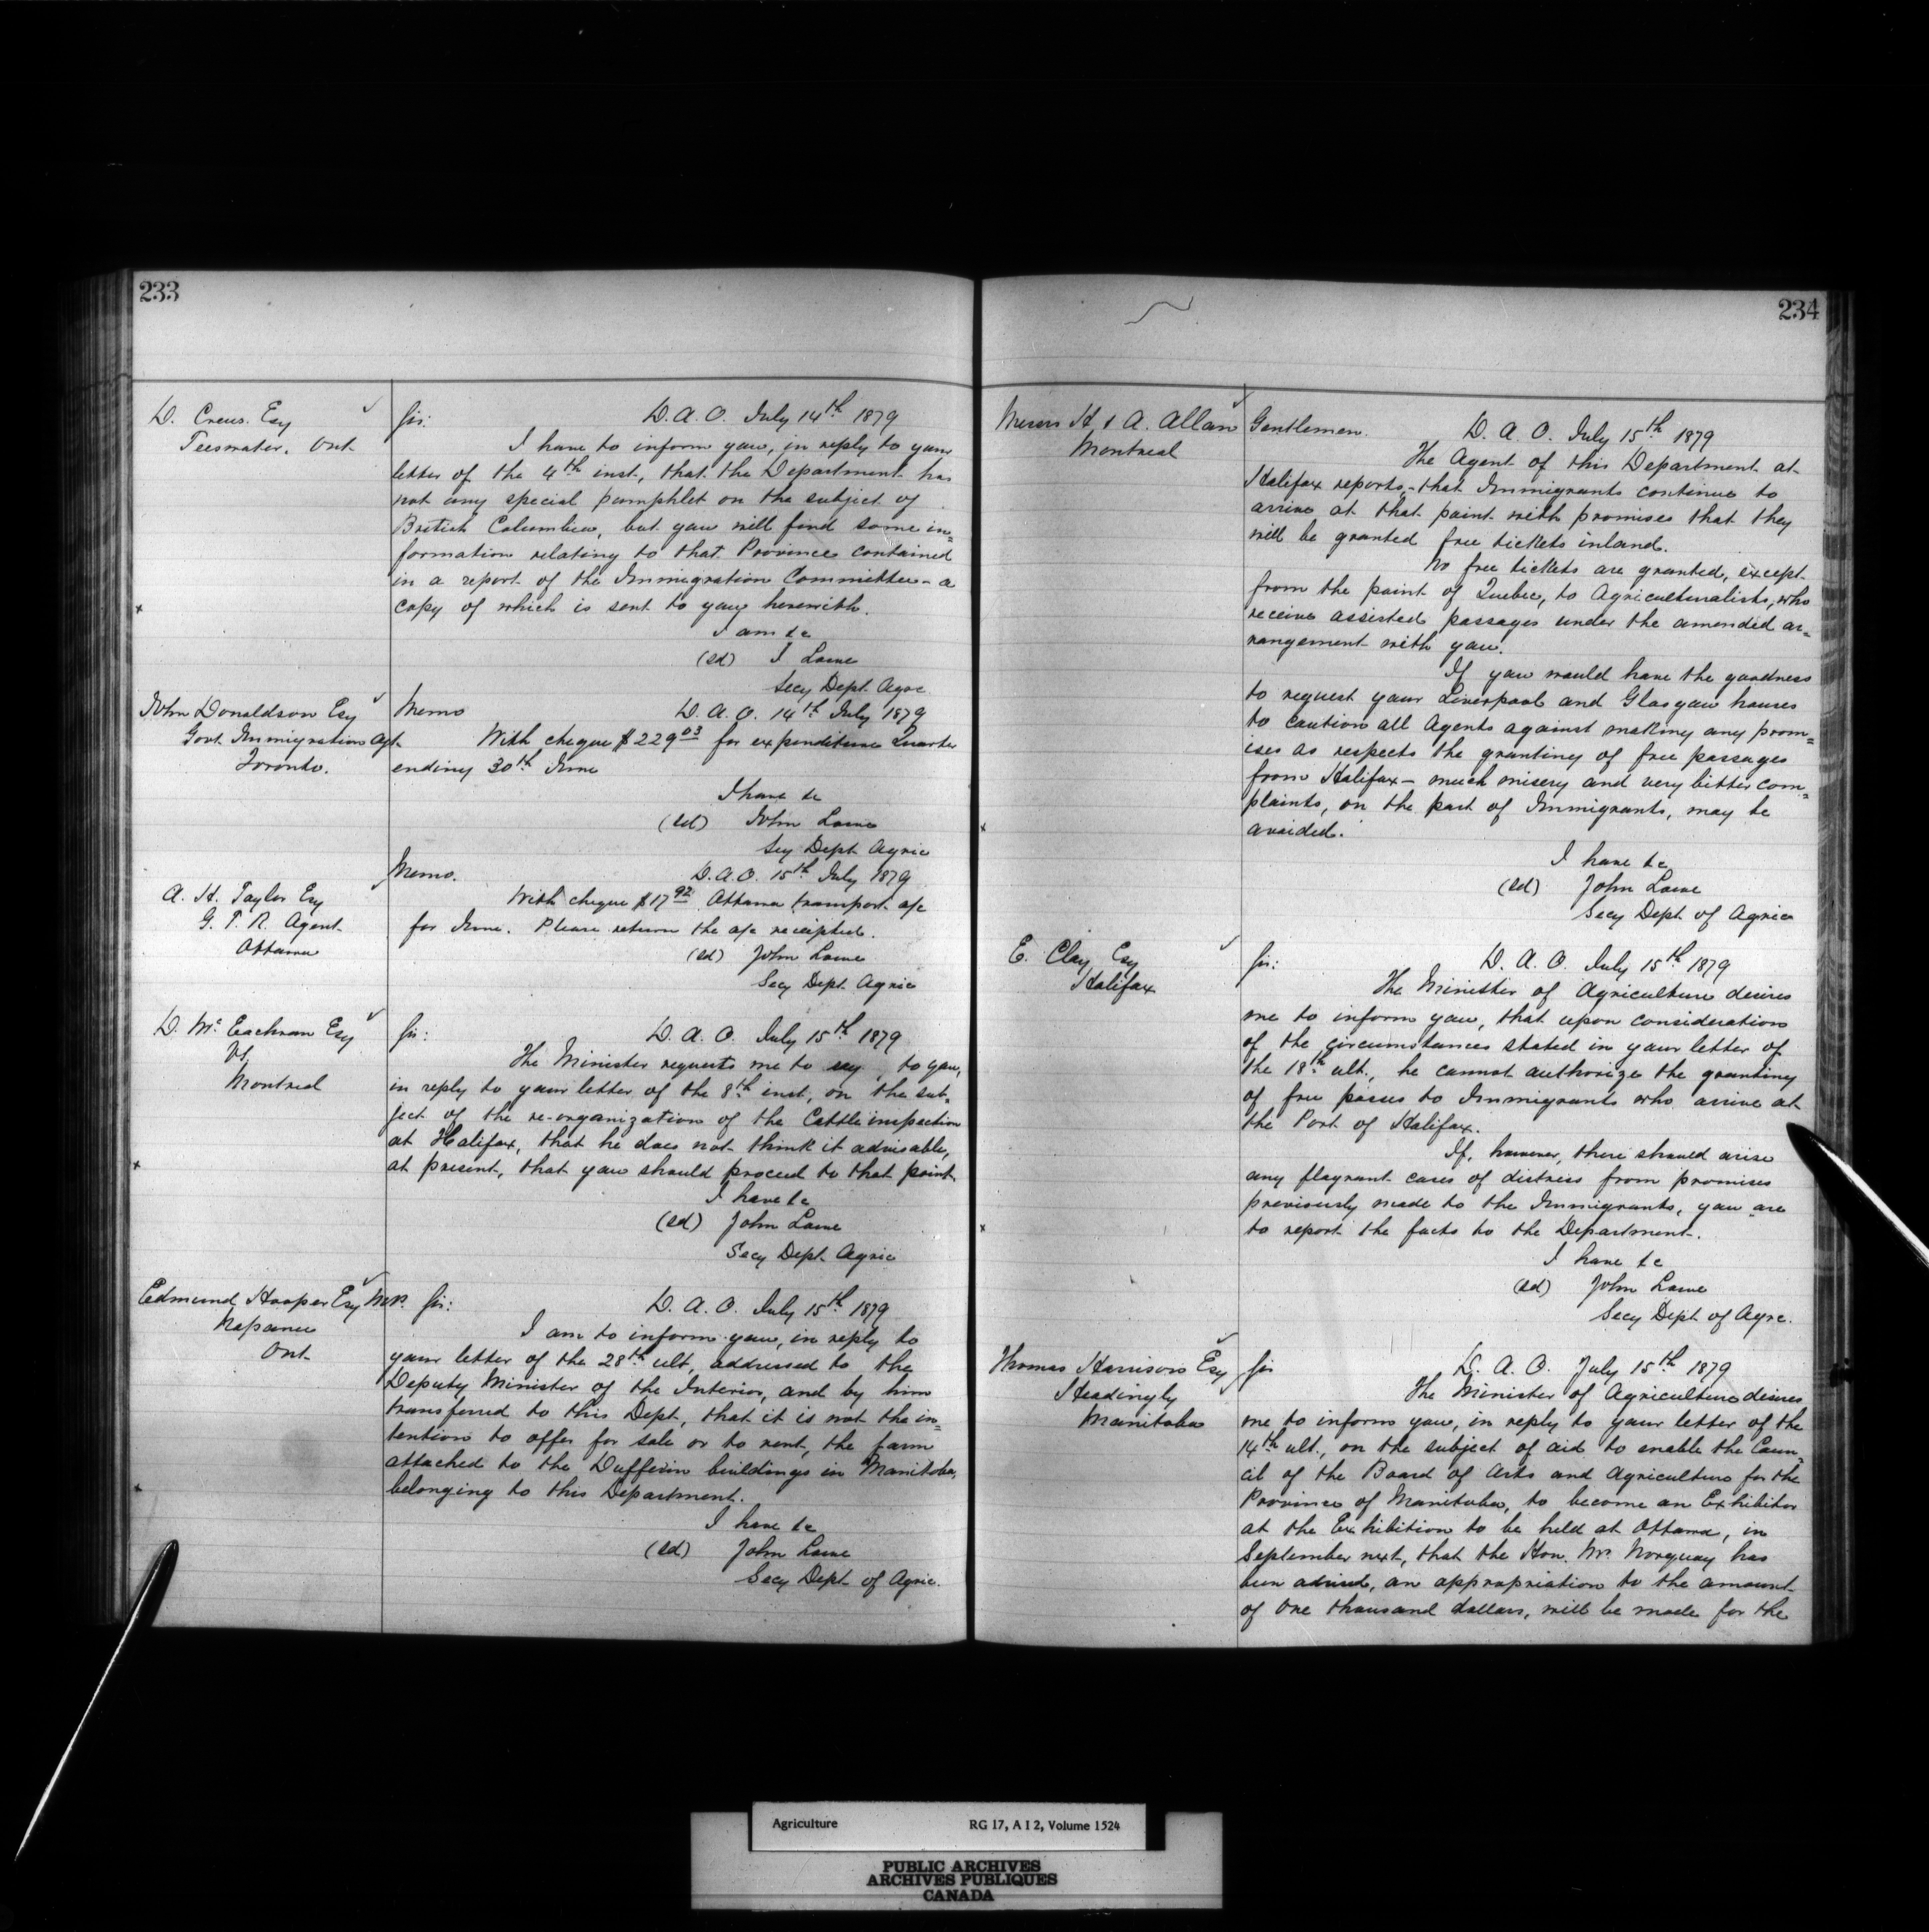 233
D. Crews. Esq
Teeswater. Ont
Sir: D. A. O. July 14th 1879
I have to inform you, in reply to your
letter of the 4th inst, that the Department has
not any special pamphlet on the subject of
British Columbia, but you will find some in=
formation relating to that Province contained
in a report of the Immigration Committee - a
copy of which is sent to you herewith.
I am &c
(sd) J. Lowe
Secy Dept. Agre
John Donaldson Esq
Govt Immigration Agt.
Toronto.
Memo D. A. O. 14th July 1879
With cheque $229 03 for expenditure Quarter
ending 30th June
I have &c
(sd) John Lowe
Secy Dept Agric
A. H. Taylor Esq
G. T. R. Agent
Ottawa
Memo. D. A. O. 15th July 1879
With cheque $17 92 Ottawa transport a/c
for June. Please return the a/c receipted.
(sd) John Lowe
Secy Dept. Agric
D. Mc Eachran Esq
V.S.
Montreal
Sir: D. A. O. July 15th 1879
The Minister requests me to say, to you,
in reply to your letter of the 8th inst, on the sub=
ject of the re-organization of the Cattle inspection
at Halifax, that he does not think it advisable,
at present, that you should proceed to that point.
I have &c
(sd) John Lowe
Secy Dept. Agric
Edmund Hooper Esq M.P.
Napanee
Ont
Sir: D. A. O. July 15th 1879
I am to inform you, in reply to
your letter of the 28th ult, addressed to the
Deputy Minister of the Interior, and by him
transferred to this Dept, that it is not the in=
tention to offer for sale or to rent, the farm
attached to the Dufferin buildings in Manitoba,
belonging to this Department.
I have &c
(sd) John Lowe
Secy Dept of Agric.
234
Messrs H. & A. Allan
Montreal
Gentlemen. D. A. O. July 15th 1879
The Agent of this Department at
Halifax reports, - that Immigrants continue to
arrive at that point with promises that they
will be granted free tickets inland.
No free tickets are granted, except
from the point of Quebec, to Agriculturalists, who
receive assisted passages under the amended ar=
rangement with you.
If you would have the goodness
to request your Liverpool and Glasgow houses
to caution all Agents against making any prom=
ises as respects the granting of free passages
from Halifax - much misery and very bitter com=
plaints, on the part of Immigrants, may be
avoided.
I have &c
(sd) John Lowe
Secy Dept of Agric
E. Clay Esq
Halifax
Sir: D. A. O. July 15th 1879
The Minister of Agriculture desires
me to inform you, that upon consideration
of the circumstances stated in your letter of
the 18th ult., he cannot authorize the granting
of free passes to Immigrants who arrive at
the Port of Halifax.
If, however, there should arise
any flagrant cases of distress from promises
previously made to the Immigrants, you are
to report the facts to the Department.
I have &c
(sd) John Lowe
Secy Dept of Agre.
Thomas Harrison Esq
Headingly
Manitoba
Sir D. A. O. July 15th 1879
The Minister of Agriculture desires
me to inform you, in reply to your letter of the
14th ult., on the subject of aid to enable the Coun=
cil of the Board of Arts and Agriculture for the
Province of Manitoba, to become an Exhibitor
at the Exhibition to be held at Ottawa, in
September next, that the Hon. Mr. Norquay has
been advised, an appropriation to the amount
of One thousand dollars, will be made for the
Agriculture RG 17, A I 2, Volume 1524
PUBLIC ARCHIVES
ARCHIVES PUBLIQUES
CANADA